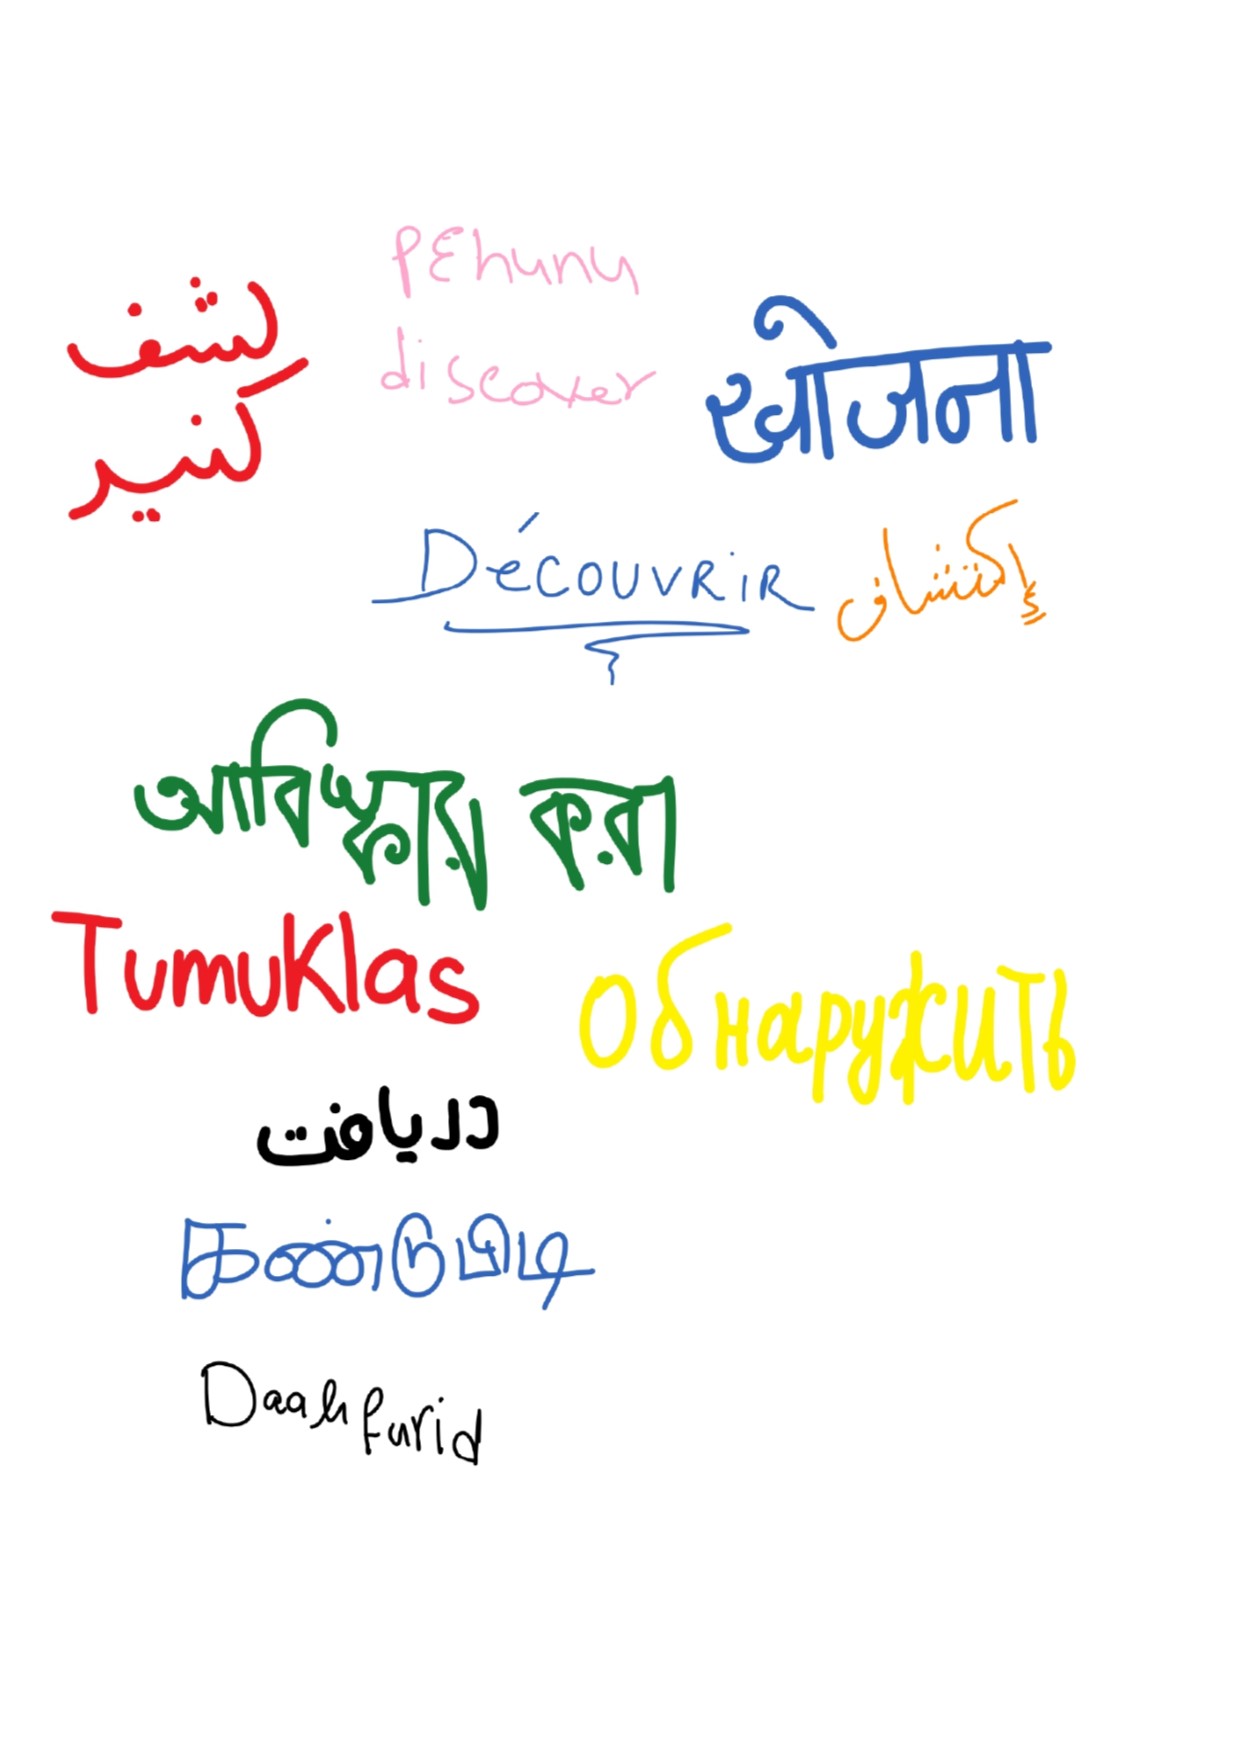 pɛhunu
discover
کشف
کنید
खोजना
Découvrir
إكتشاف
আবিষ্কার করা
Tumuklas
обнаружить
دریافت
கண்டுபிடி
Daah furid